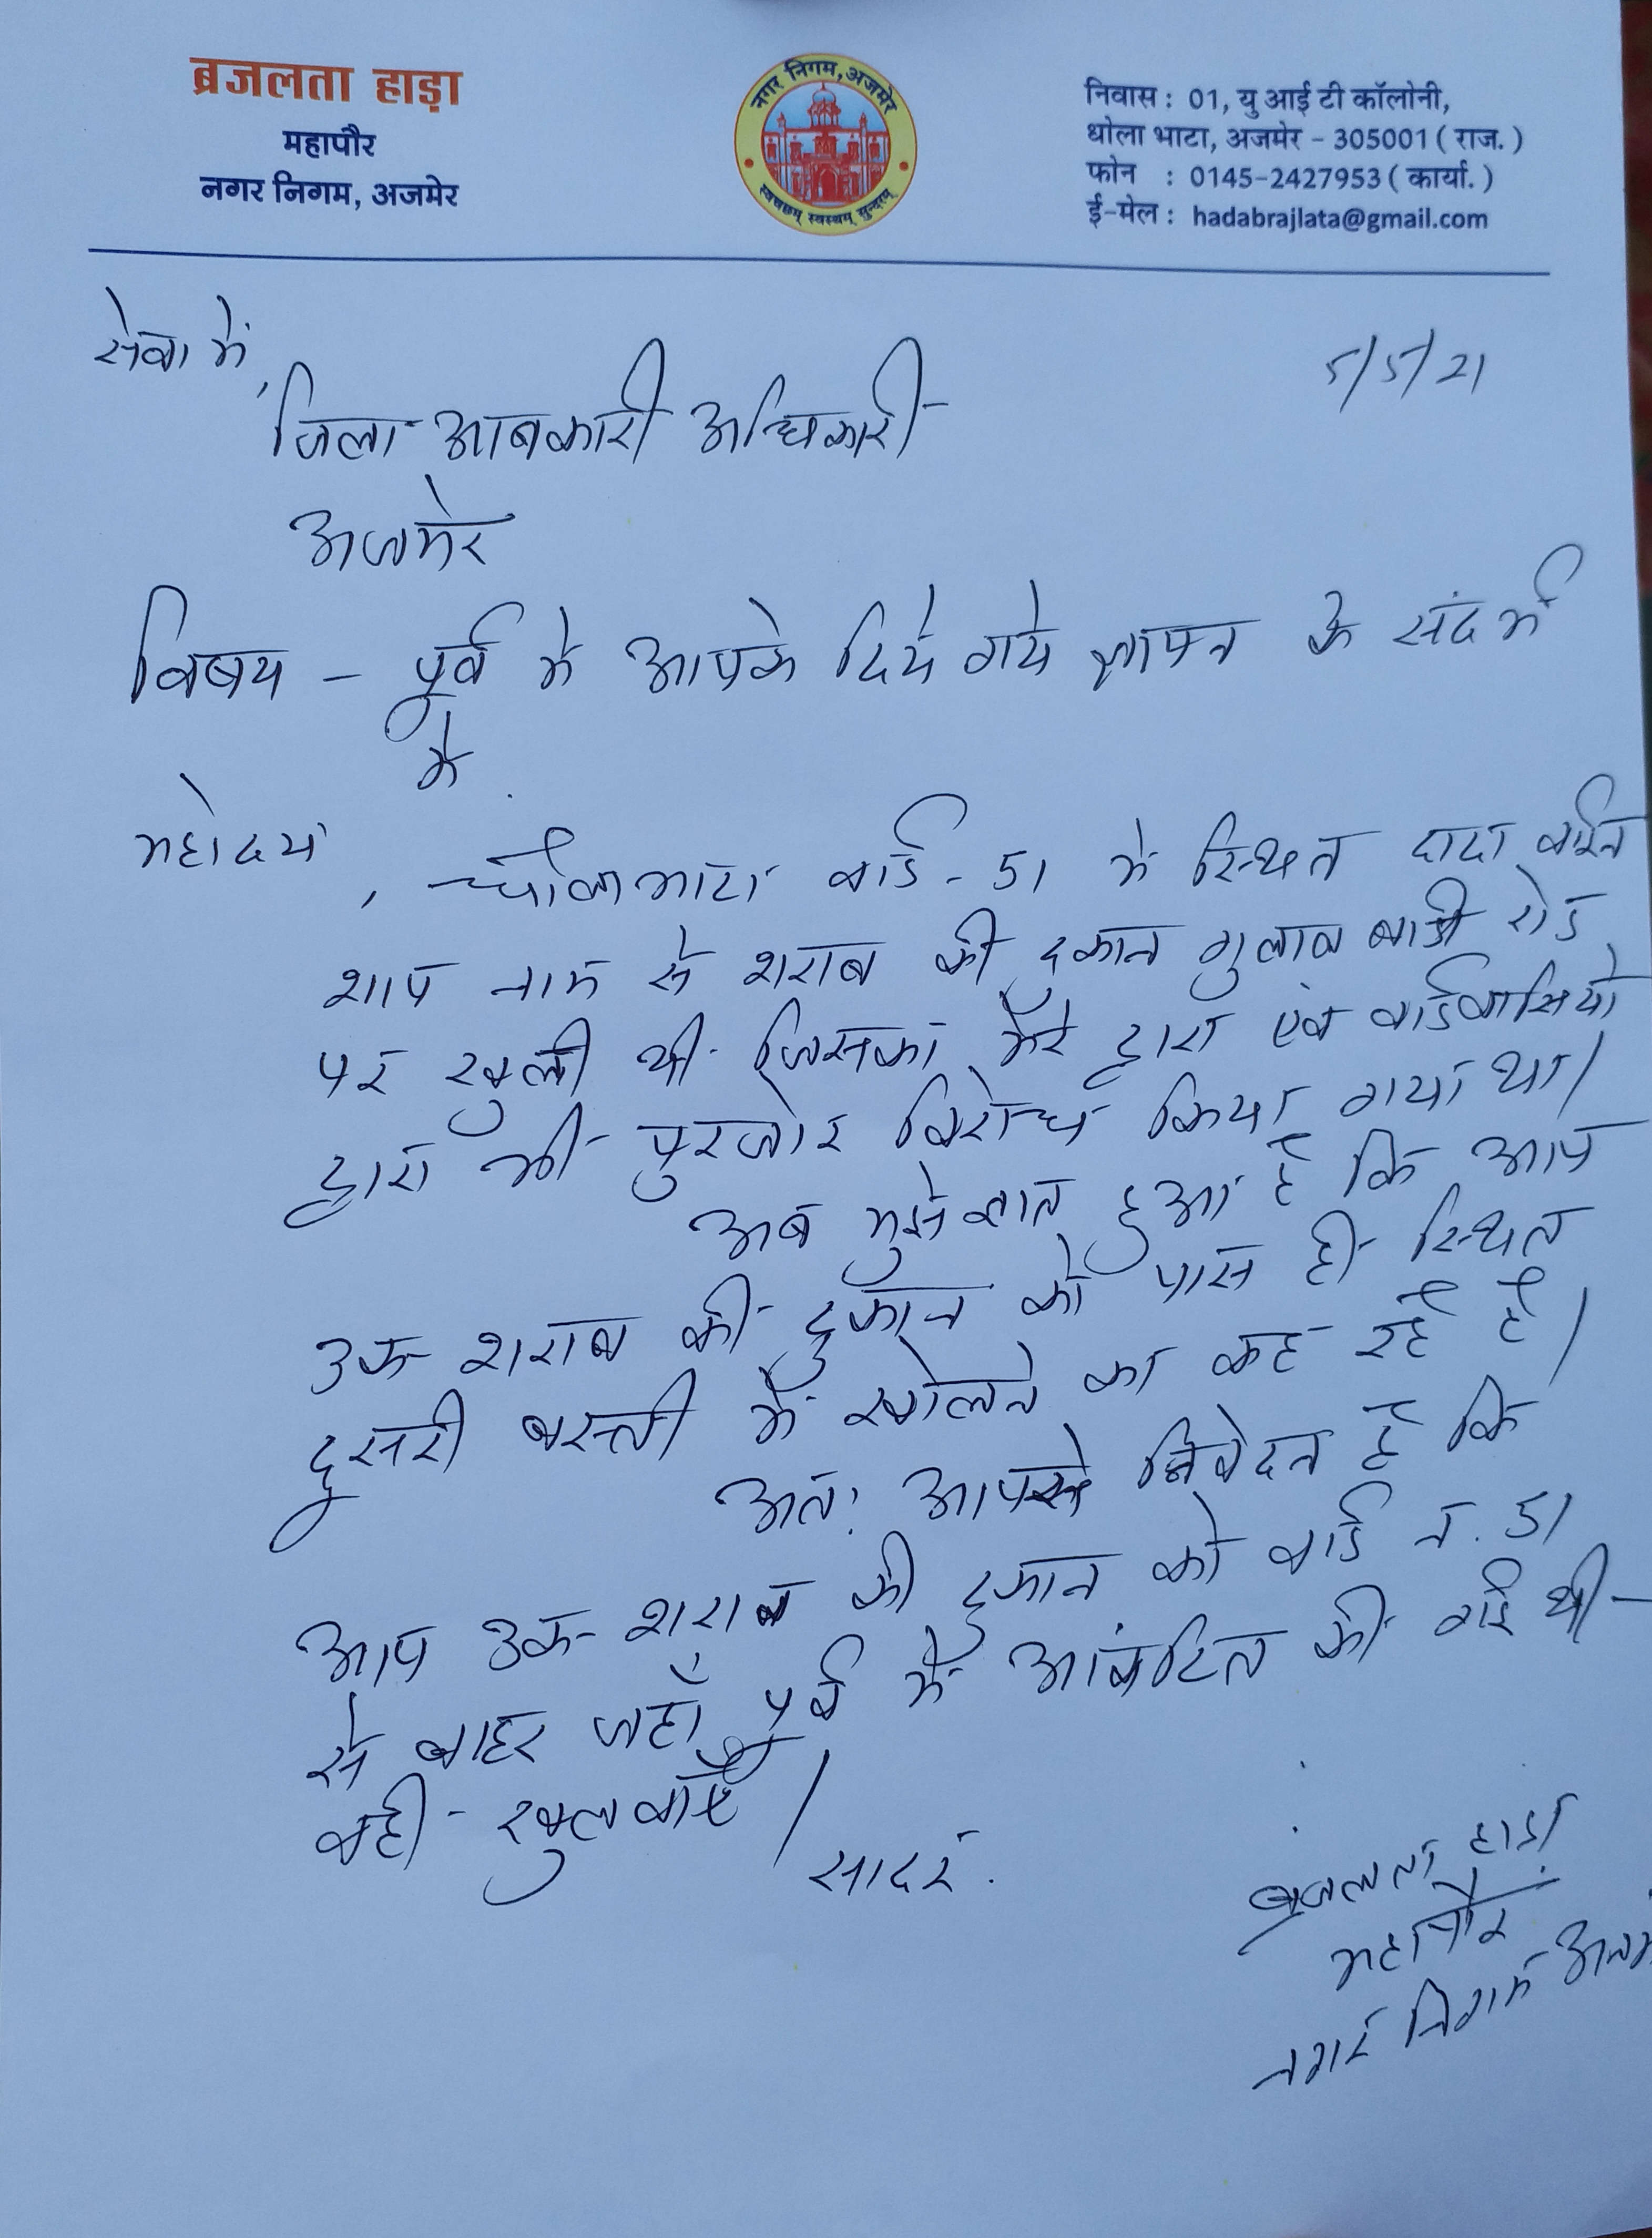 ब्रजलता हाड़ा
महापौर
नगर निगम, अजमेर
नगर निगम, अजमेर
स्वच्छम् स्वस्थम् सुन्दरम्
निवास : 01, यु आई टी कॉलोनी,
धोला भाटा, अजमेर - 305001 ( राज. )
फोन : 0145-2427953 ( कार्या. )
ई-मेल : hadabrajlata@gmail.com
सेवा में,
5/5/21
जिला आबकारी अधिकारी
अजमेर
विषय - पूर्व मे आपके दिये गये ज्ञापन के संदर्भ
मे
महोदय,
धोलाभाटा वार्ड - 51 मे स्थित दादा वाईन
शाप नाम से शराब की दुकान गुलाब बाडी रोड
पर खुली थी जिसका मेरे द्वारा एंव वार्डवासियो
द्वारा भी पुरजोर विरोध किया गया था।
अब मुझे ज्ञात हुआ है कि आप
उक्त शराब की दुकान को पास ही स्थित
दूसरी बस्ती में खोलने का कह रहे है।
अत: आपसे निवेदन है कि
आप उक्त शराब की दुकान को वार्ड न. 51
से बाहर जहाँ पूर्व मे आंवटित की गई थी
वही खुलवाएँ।
सादर.
ब्रजलता हाडा
महापौर
नगर निगम